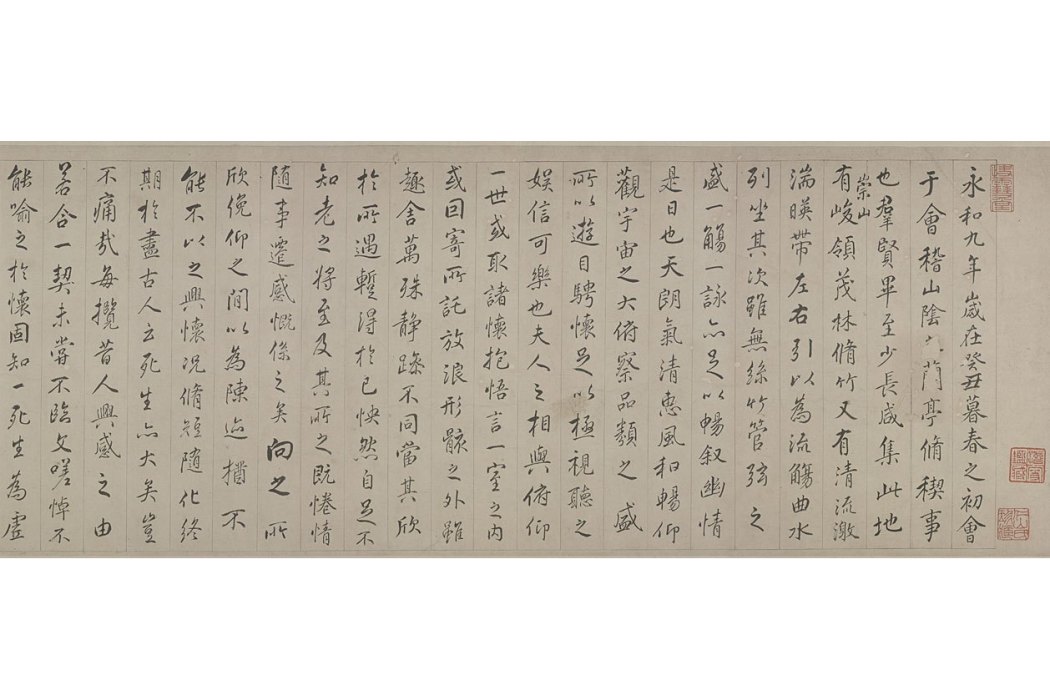 永和九年歲在癸丑暮春之初會
于會稽山陰之蘭亭脩稧事
也羣賢畢至少長咸集此地
有崇山峻領茂林脩竹又有清流激
湍暎帶左右引以為流觴曲水
列坐其次雖無絲竹管弦之
盛一觴一詠亦足以暢叙幽情
是日也天朗氣清惠風和暢仰
觀宇宙之大俯察品類之盛
所以遊目騁懷足以極視聽之
娛信可樂也夫人之相與俯仰
一世或取諸懷抱悟言一室之內
或因寄所託放浪形骸之外雖
趣舍萬殊静躁不同當其欣
於所遇蹔得於己怏然自足不
知老之將至及其所之既惓情
随事遷感慨係之矣向之所
欣俛仰之間以為陳迹猶不
能不以之興懷況脩短随化終
期於盡古人云死生亦大矣豈
不痛哉每攬昔人興感之由
若合一契未甞不臨文嗟悼不
能喻之於懷固知一死生為虛